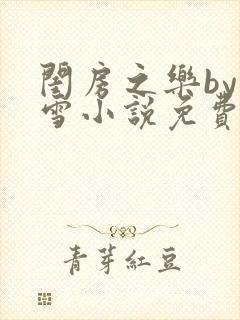 閨房之樂by
雪小說免費
青芽紅豆